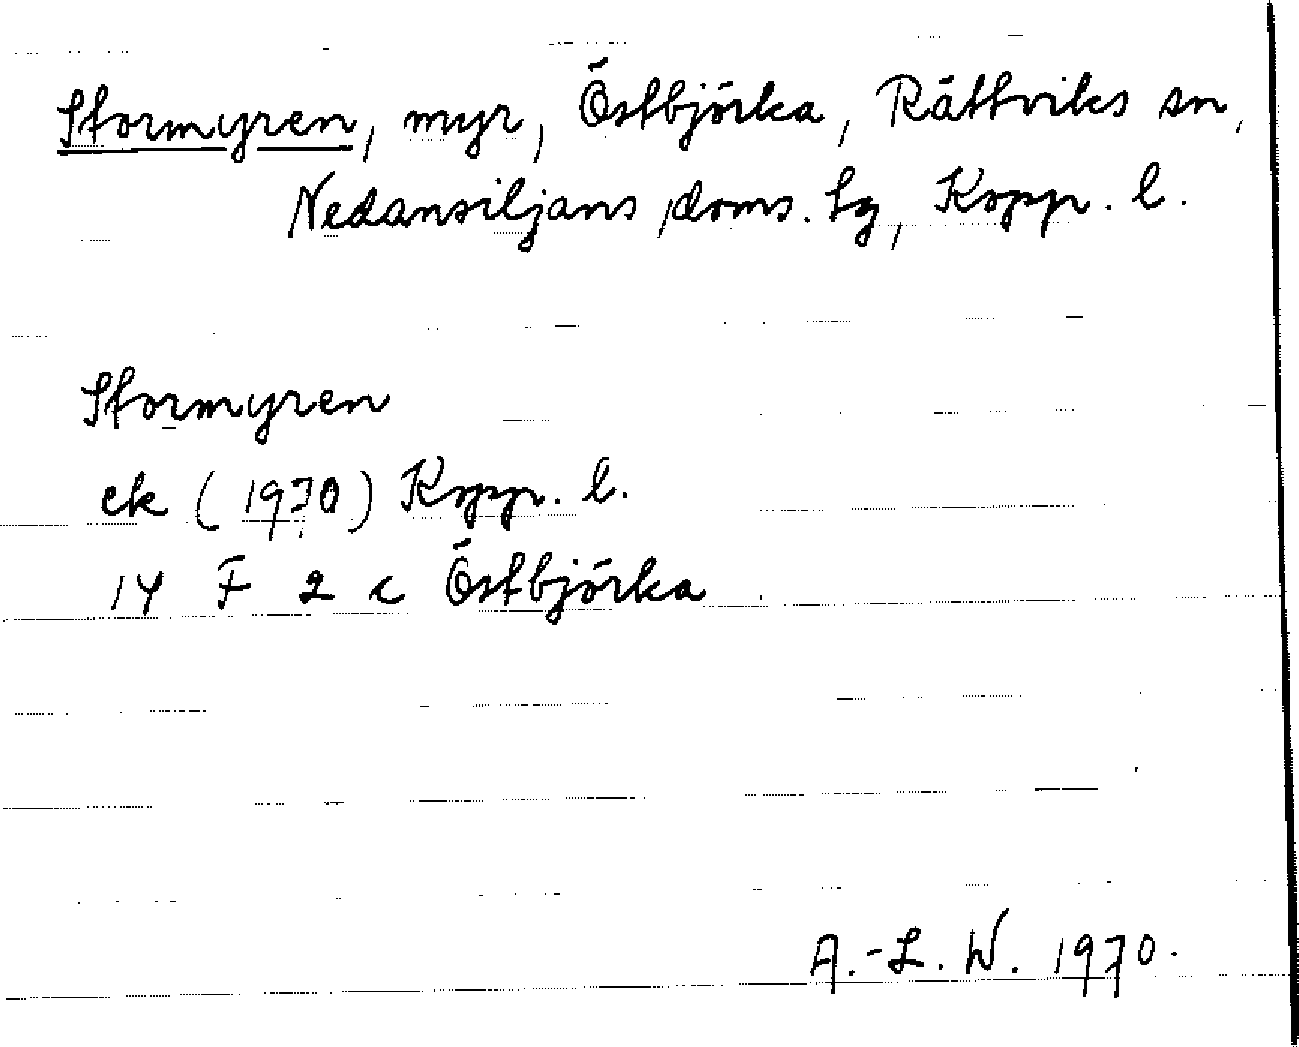 Stormyren, myr, Östbjörka, Rättviks sn,
Nedansiljans doms. hg, Kopp. l.
Stormyren
ek (1970) Kopp. l.
14 F 2 c Östbjörka
A.-L. W. 1970.